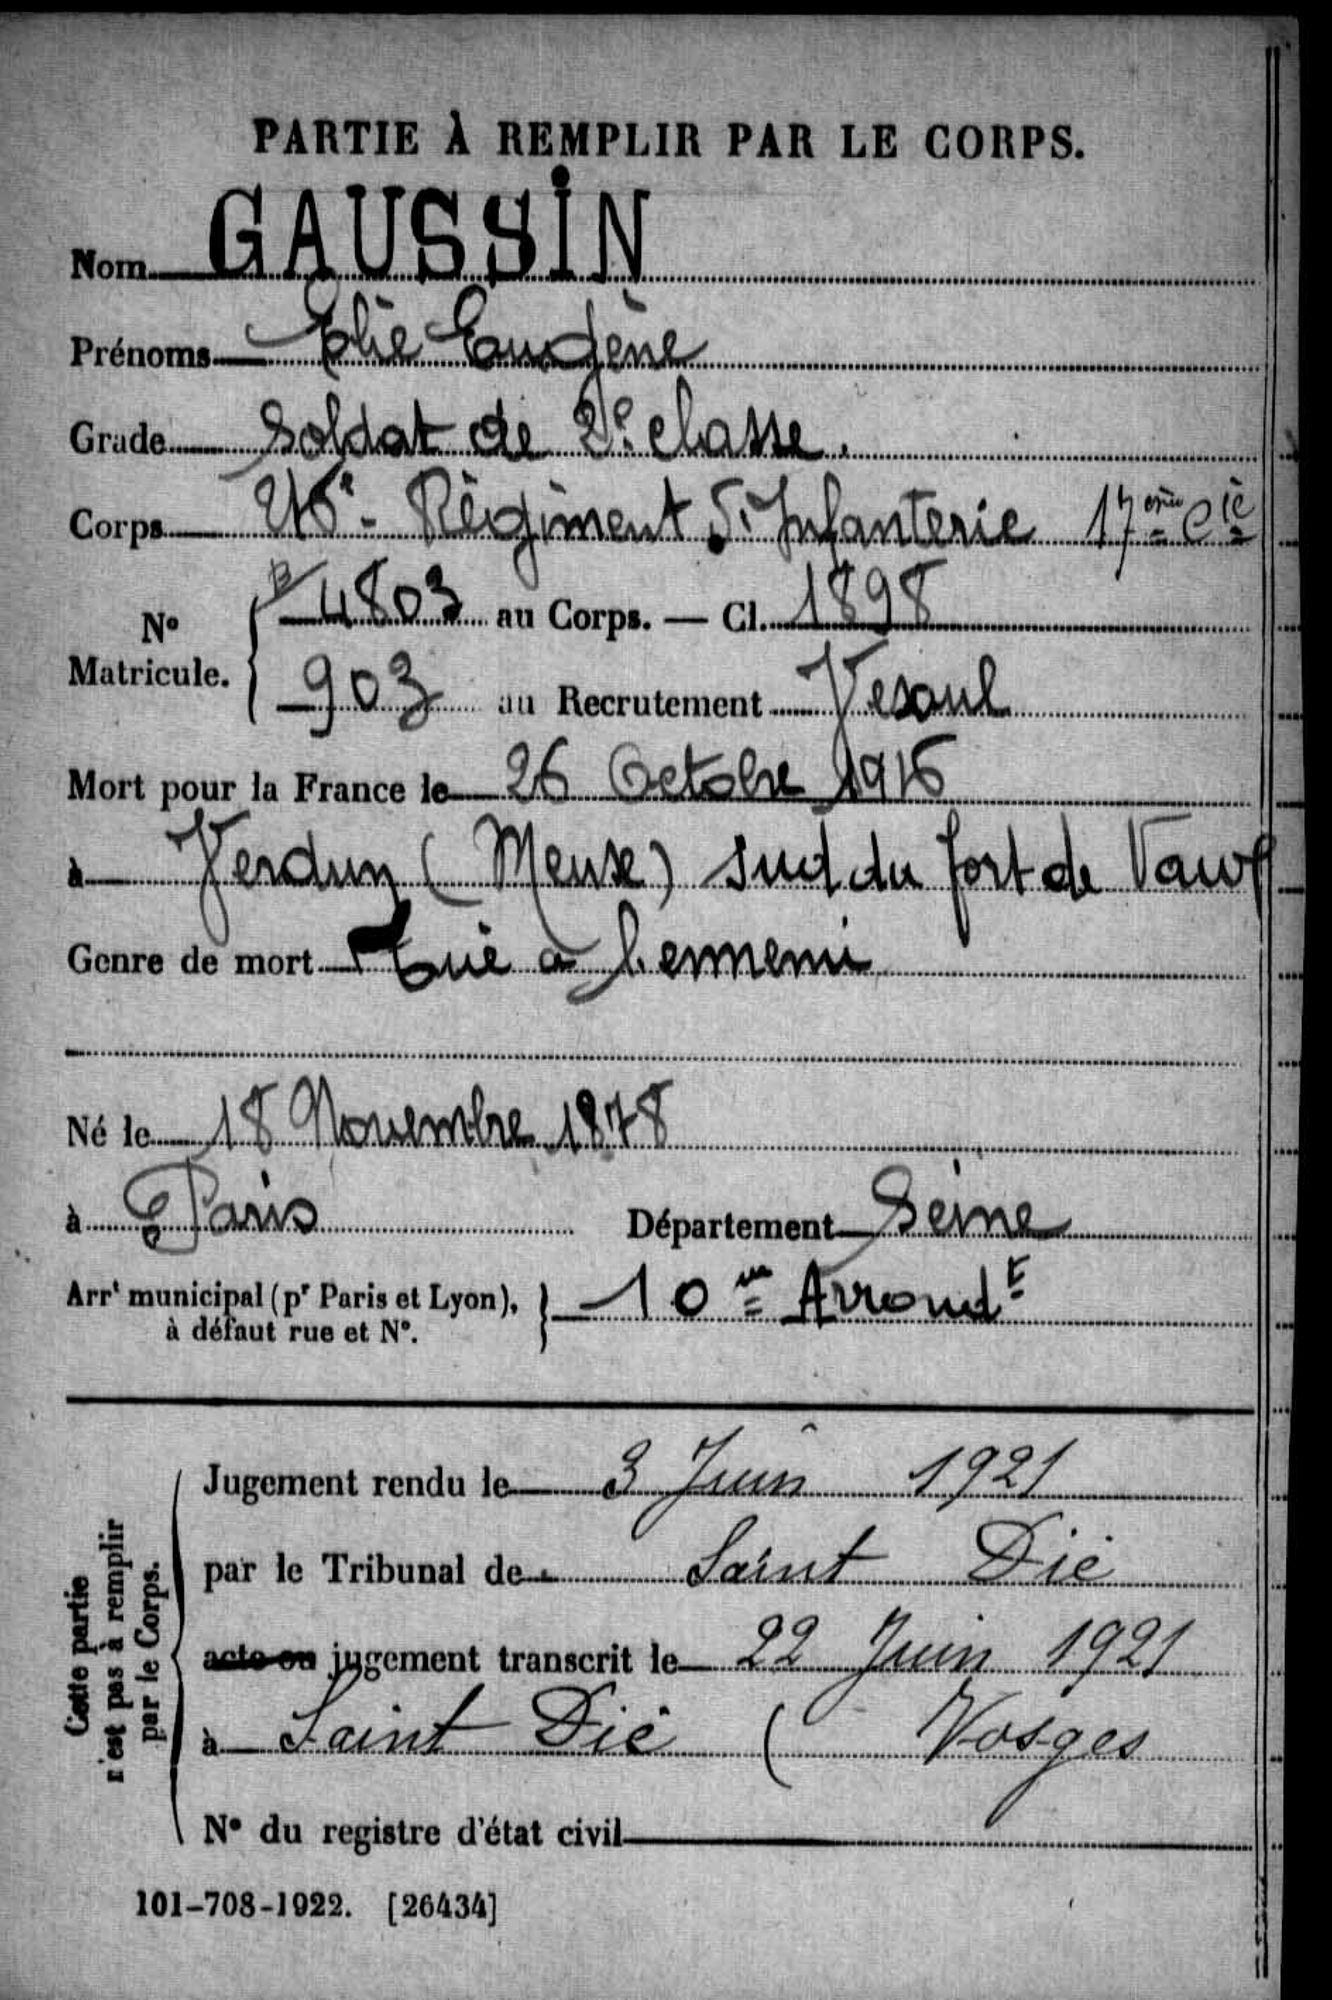 PARTIE À REMPLIR PAR LE CORPS.
Nom GAUSSIN
Prénoms Elie Eugène
Grade Soldat de 2e classe.
Corps 216e Régiment d'Infanterie 17ème Cie
No Matricule. { 4803 au Corps. — Cl. 1898
903 au Recrutement Vesoul
Mort pour la France le 26 Octobre 1916
à Verdun (Meuse) sud du fort de Vaux
Genre de mort Tué à l'ennemi
Né le 18 Novembre 1878
à Paris Département Seine
Arrt municipal (pr Paris et Lyon), à défaut rue et No. } 10me Arrondt
Cette partie n'est pas à remplir par le Corps.
Jugement rendu le 3 Juin 1921
par le Tribunal de Saint Dié
acte ou jugement transcrit le 22 Juin 1921
à Saint Dié ( Vosges
No du registre d'état civil
101-708-1922. [26434]